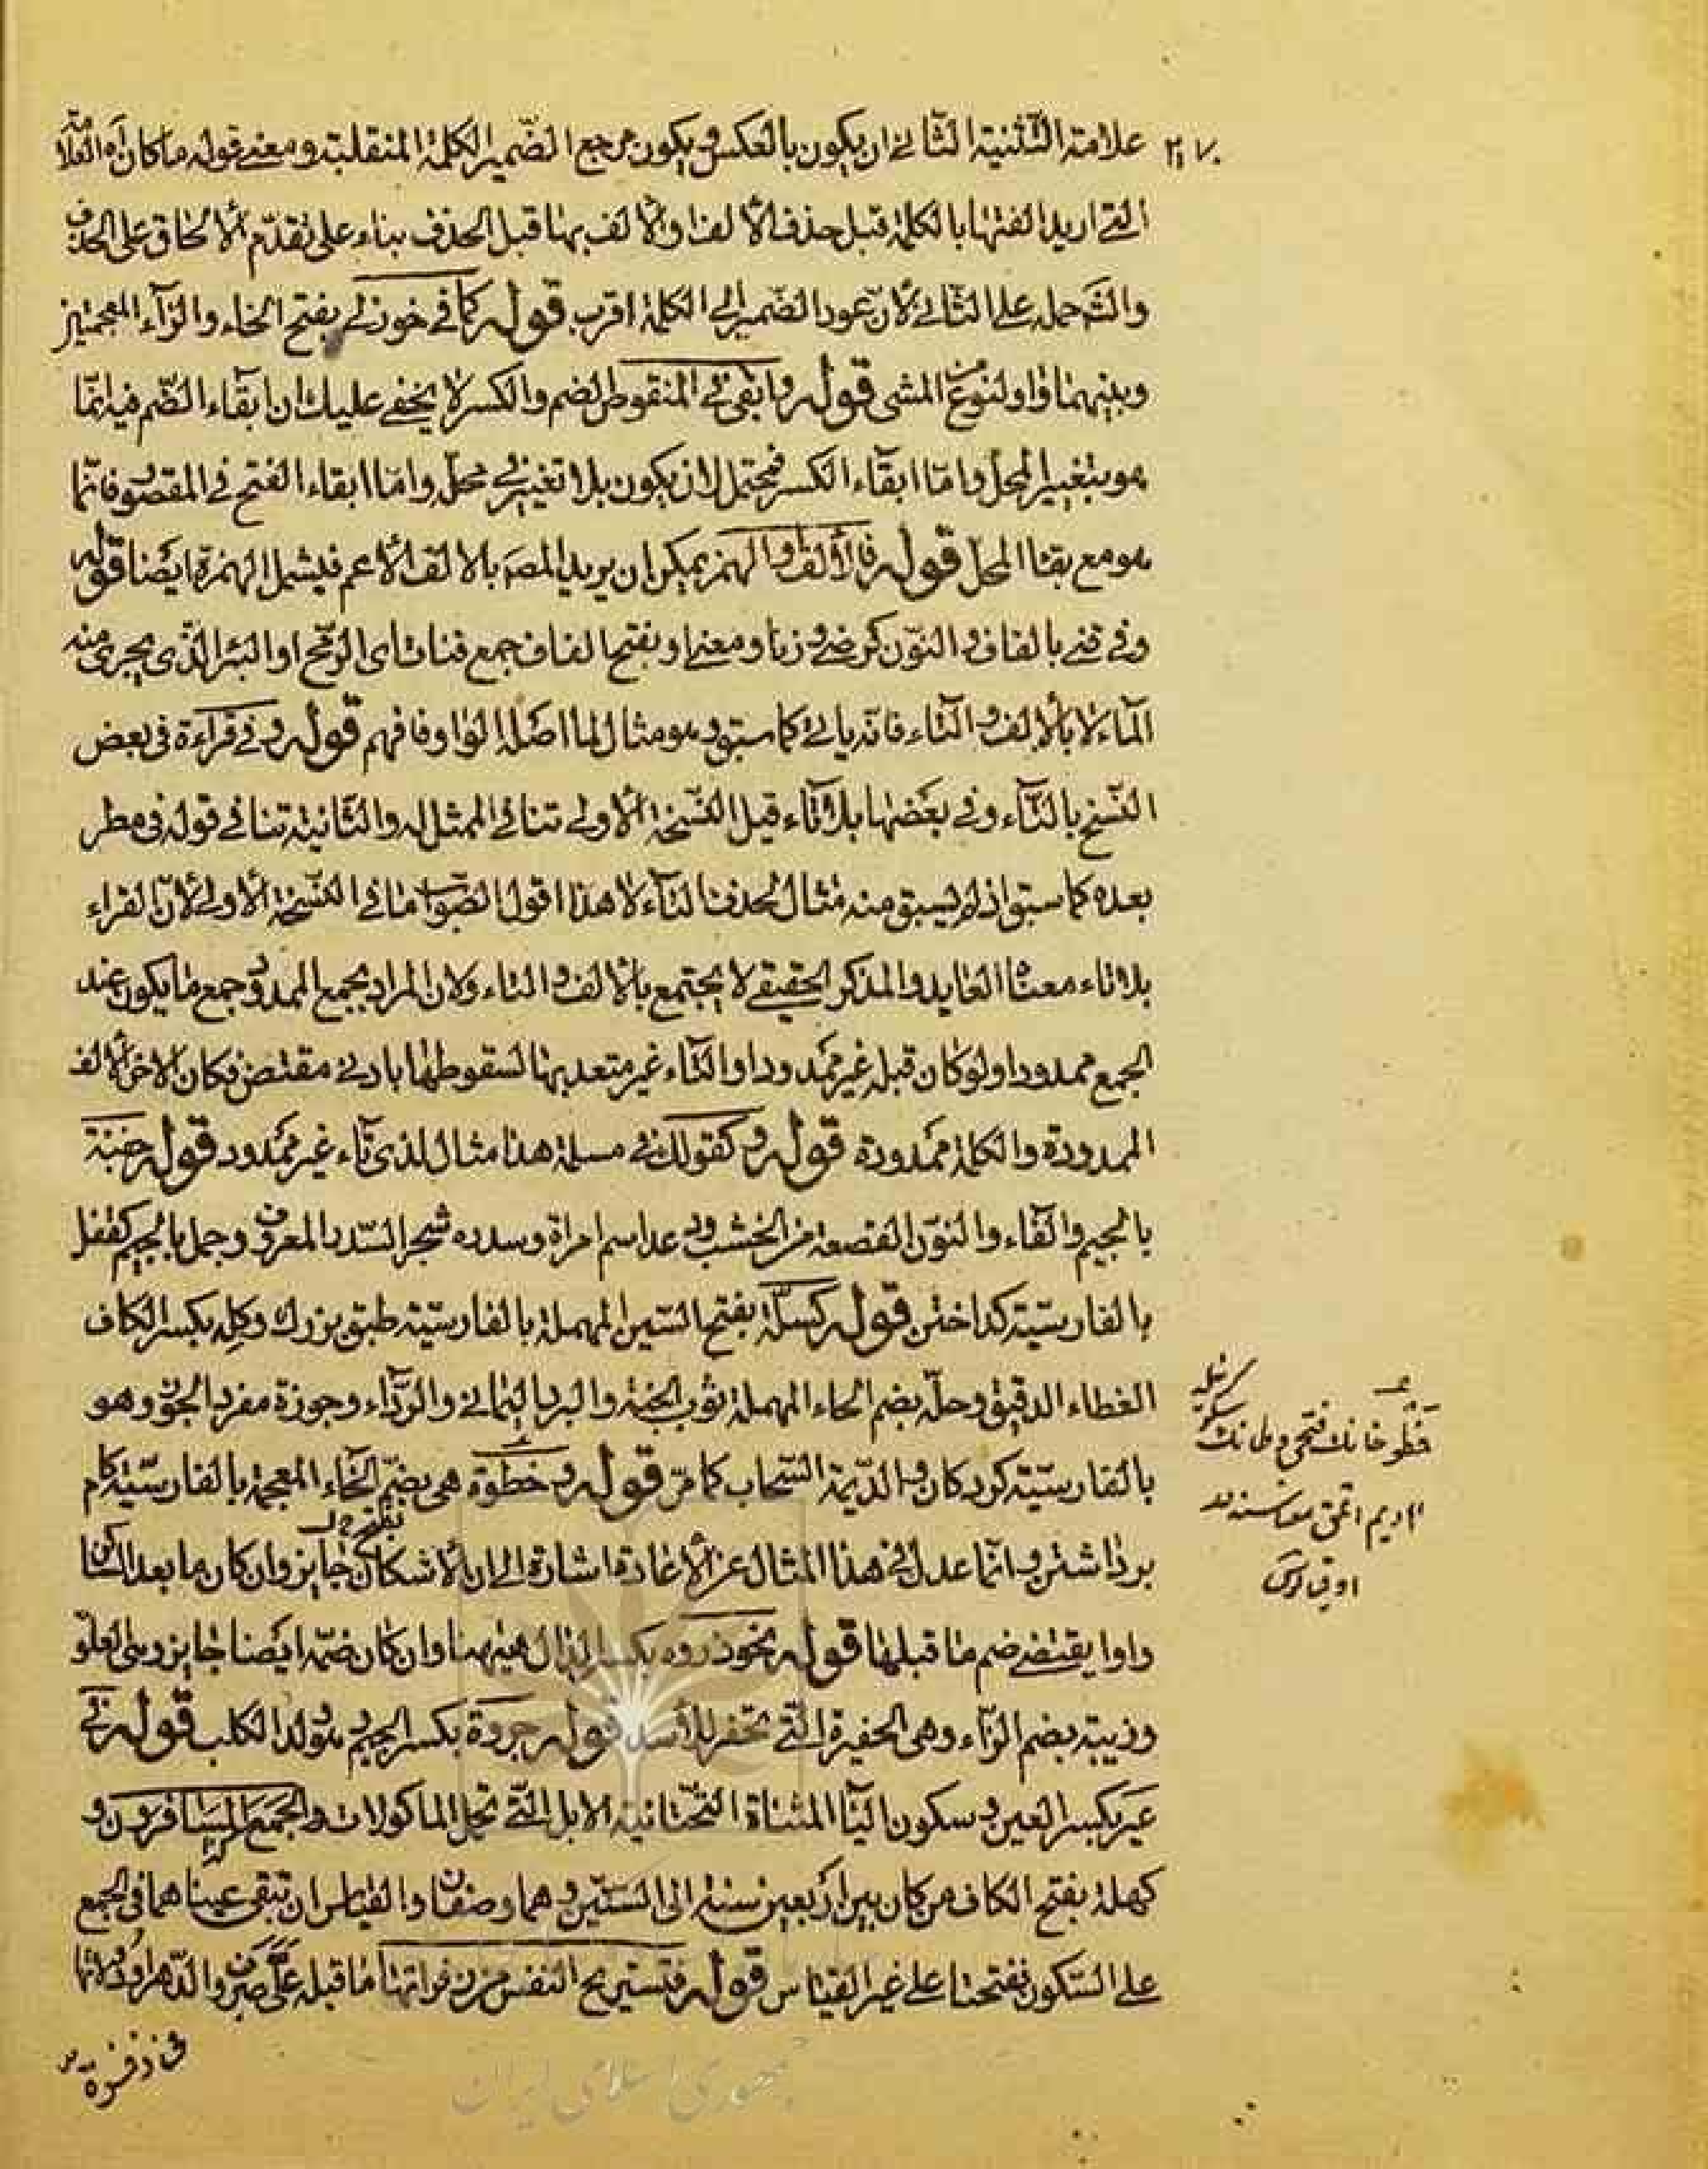 علامة التثنية الثانی ان یکون بالعکس و یکون مرجع الضمیر الکلمة المنقلبة و معنی قوله ما کان
التی ارید الفتها بالکلمة قبل حذف الألف او الألف بها قبل الحذف بناء علی تقدّم الألحاق علی الحذف
والشّ حمله علی الثانی لأنّ عود الضّمیر الی الکلمة اقرب قوله کما فی خوزلی بفتح الخاء والزّاء المعجمتین
وبینهما واو لنوع من المشی قوله و ابقی فی المنقوط الضم والکسر لا یخفی علیك ان ابقاء الضّم فیه انّما
هو بتغییر المحل وامّا ابقاء الکسر فیحتمل لان یکون بلا تغییر فی محلّ وامّا ابقاء الفتح فی المقصور فانّما
هو مع بقاء المحل قوله فالألف والهمز یمکن ان یرید المصـ بالالف الأعم فیشمل الهمزة ایضا قوله
وفی قنی بالقاف و النّون کرضی وزنا ومعنی او بفتح القاف جمع قناة ای الرّمح او البئر الّذی یجری منه
المآء لا بألالف و التّاء فانّه یائی کما سبق و هو مثال لما اصله الواو فافهم قوله و فی قراءة فی بعض
النّسخ بالتّآء وفی بعضها بلا تآء قیل النّسخة الأولی تنافی الممثل له والثّانیة تنافی قوله فی مطر
بعده کما سبق اذ لم یسبق منه مثال لحذف التآء لا هذا اقول الصّواب ما فی النّسخة الأولی لأنّ القراء
بلا تاء معناه العابد والمذکر الحقیقی لا یجتمع بالألف و التاء ولان المراد بجمع الممدود جمع ما یکون عند
الجمع ممدودا ولو کان قبله غیر ممدود او التّاء غیر متعد بها لسقوطها بادنی مقتض فکان الاخر الألف
الممدودة والکلمة ممدودة قوله و کقولك فی مسلمة هذا مثال لذی تآء غیر ممدود قوله جفنة
بالجیم والفاء والنّون القصعة من الخشب و دعد اسم امراة وسدره شجر السّدر المعروف وجمل بالجیم کقفل
بالفارسیّة کداختن قوله کسلّة بفتح السّین المهملة بالفارسیّة طبق بزرك وکله بکسر الکاف
الغطاء الدقیق وحلّه بضم الحاء المهملة ثوب الجبّة والبرد الیمانی والرّداء وجوزة مفرد الجوز وهو
بالفارسیّة کردکان والدّیمة السّحاب کما مرّ قوله و خطوة هی بضمّ الخاء المعجمة بالفارسیّة کام
برداشتن وانّما عدل فی هذا المثال عن الأعادة اشارة الی ان الأشکان جایز وان کان ما بعد الساکن
واوا یقتضی ضم ما قبلها قوله نحو ذروه بکسر الذال هیهنا وان کان ضمّه ایضا جایز وهی العلو
وزبیة بضم الزّاء وهی الحفیرة الّتی تحفر للأسد قوله جروة بکسر الجیم هو ولد الکلب قوله فی
عیر بکسر العین و سکون الیآء المثناة التحتانیة الابل الّتی تحمل الماکولات والجمع المسافرون و
کهلة بفتح الکاف من کان بین اربعین سنة الی السّتّین و هما وصفان والقیاس ان تبقی عیناهما فی الجمع
علی السّکون نفتحنا علی غیر القیاس قوله فتستریح النفس من زفراتها ما قبله علّ صروف الدّهر او دولاتها
فی زفرة